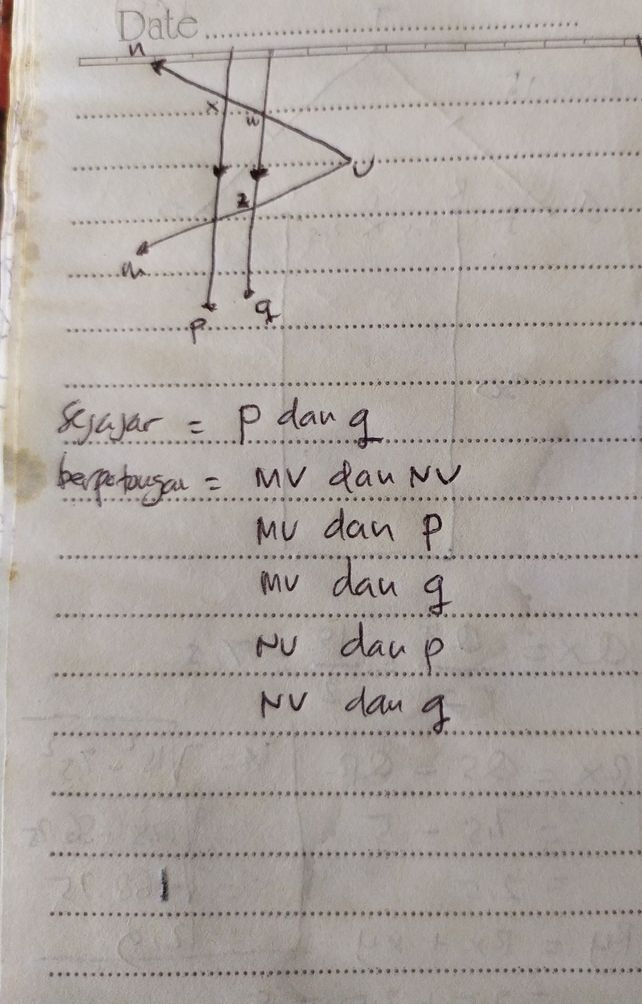 Date
n
x
u
U
z
m
p
q
Sejajar = p dan q
berpotongan = MV dan NV
MV dan p
MV dan q
NV dan p
NV dan q